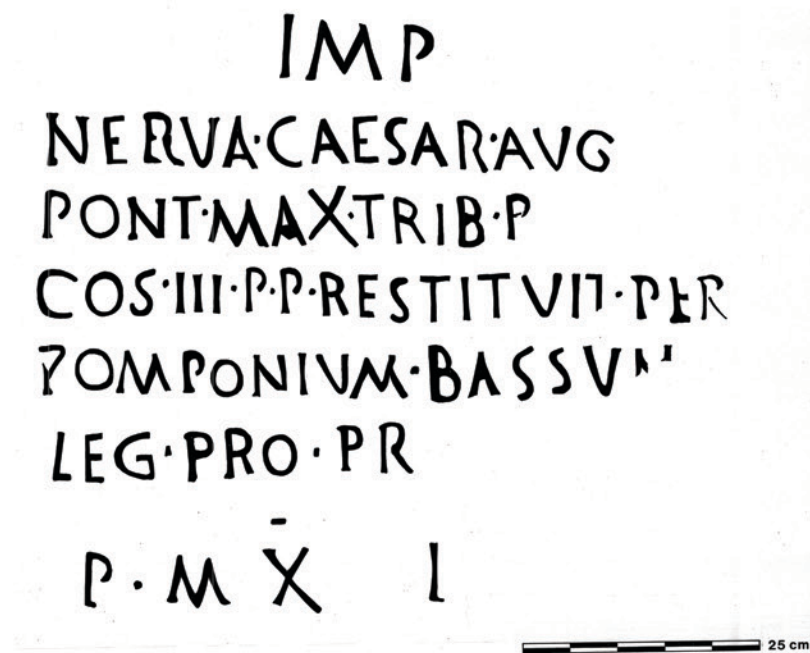 IMP
NERVA·CAESAR·AVG
PONT·MAX·TRIB·P
COS·III·P·P·RESTITVIT·PER
POMPONIVM·BASSVM
LEG·PRO·PR
P·M X̄ I
25 cm